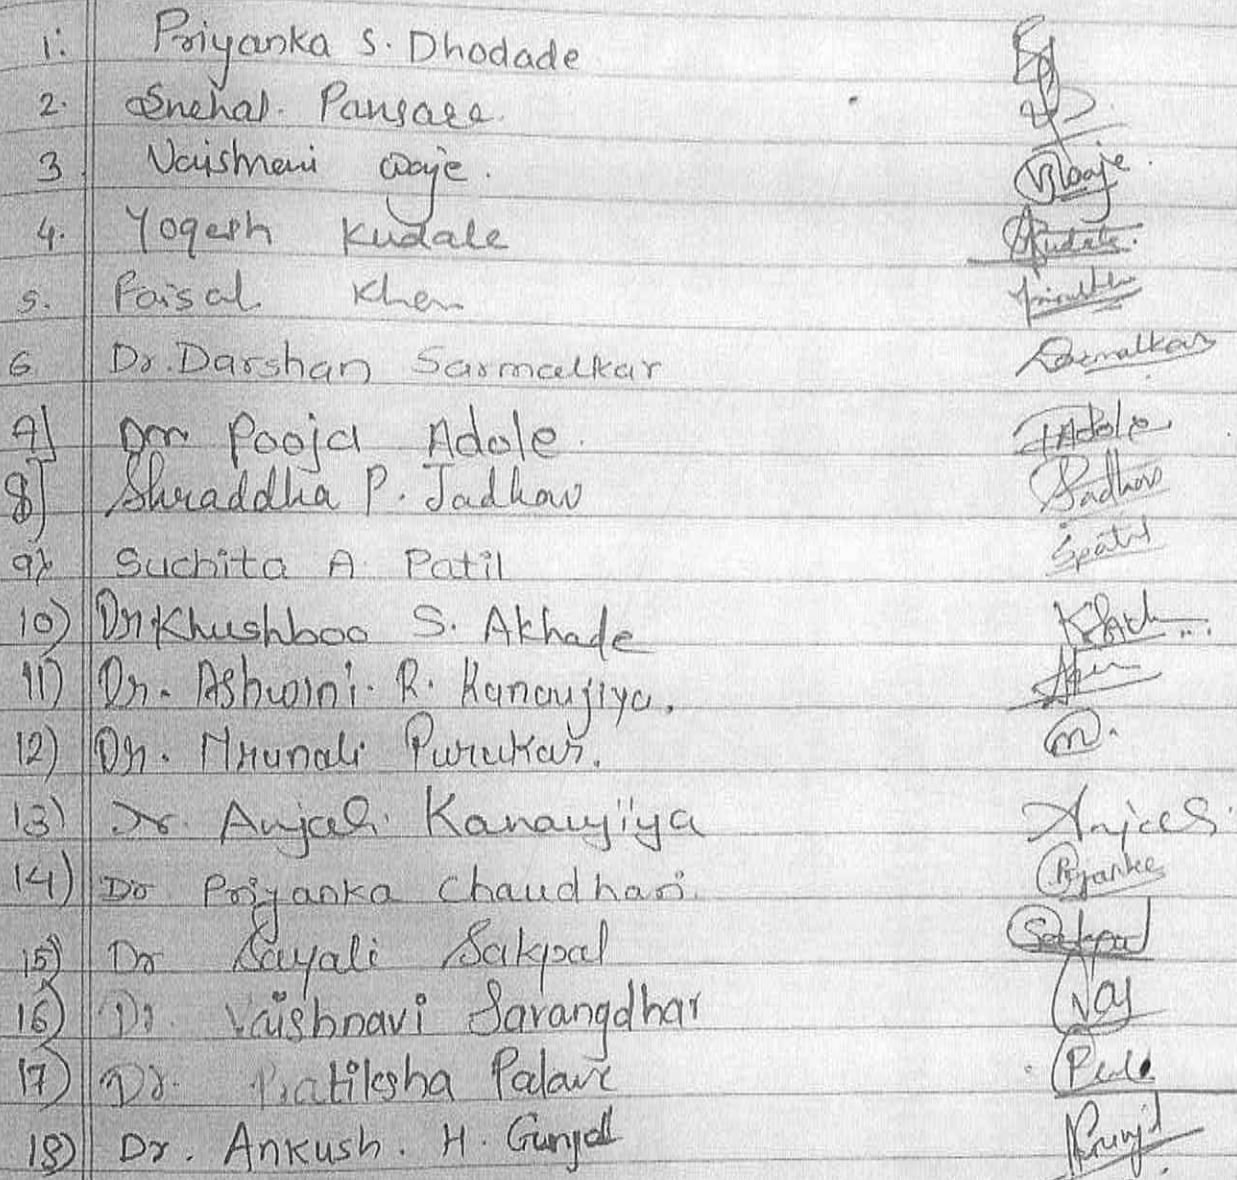 1. Priyanka S. Dhodade
2. Snehal. Pansare.
3 Vaishnavi Waje. Waje.
4. Yogesh Kudale Kudale.
5. Faisal Khan
6 Dr. Darshan Sarmalkar Sarmalkar
7] Dr Pooja Adole. PAdole
8] Shraddha P. Jadhav Jadhav
9) Suchita A. Patil Spatil
10) Dr Khushboo S. Akhade
11) Dr. Ashwini. R. Kanaujiya.
12) Dr. Mrunali Purukar. m.
13) Dr. Anjali Kanaujiya Anjali
14) Dr Priyanka Chaudhari. Priyanka
15) Dr Sayali Sakpal Sakpal
16) Dr. Vaishnavi Sarangdhar
17) Dr. Pratiksha Palave
18) Dr. Ankush. H. Gunjal